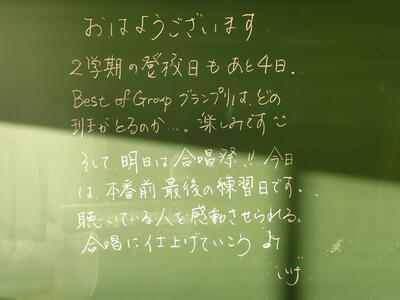 おはようございます
2学期の登校日もあと4日。
Best of Group グランプリは、どの
班がとるのか…。楽しみです
そして、明日は合唱祭!! 今日
は、本番前最後の練習日です。
聴いている人を感動させられる。
合唱に仕上げていこう